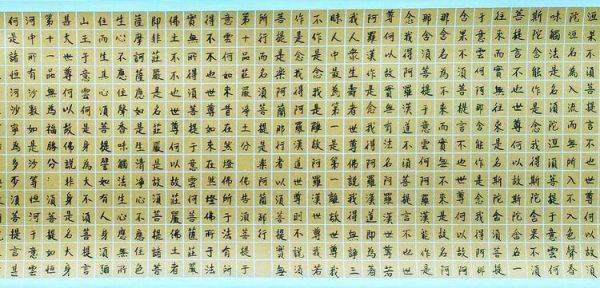 洹果不須菩提言不也世尊何以故須
陀洹名為入流而無所入不入色聲香
味觸法是名須陀洹須菩提于意云何
斯陀含能作是念我得斯陀含果不須
菩提言不也世尊何以故斯陀含名一
往來而實無往來是名斯陀含須菩提
于意云何阿那含能作是念我得阿那
含果不須菩提言不也世尊何以故阿
那含名為不來而實無不來是故名阿
那含須菩提于意云何阿羅漢能作是
念我得阿羅漢道不須菩提言不也世
尊何以故實無有法名阿羅漢世尊若
阿羅漢作是念我得阿羅漢道即為著
我人眾生壽者世尊佛說我得無諍三
昧人中最為第一是第一離欲阿羅漢
不作是念我是離欲阿羅漢世尊我若
作是念我得阿羅漢道世尊則不說須
菩提是樂阿蘭那行者以須菩提實無
所行而名須菩提是樂阿蘭那行
第十品莊嚴淨土分 佛告須菩提于
意云何如來昔在然燈佛所于法有所
得不不也世尊如來在然燈佛所于法
實無所得須菩提于意云何菩薩莊嚴
佛土不不也世尊何以故莊嚴佛土者
即非莊嚴是名莊嚴是故須菩提諸菩
薩摩訶薩應如是生清淨心不應住色
生心不應住聲香味觸法生心應無所
住而生其心須菩提譬如有人身如須彌
山王于意云何是身為大不須菩提言
甚大世尊何以故佛說非身是名大身
第十一品無為福勝分 須菩提如恒
河中所有沙數如是沙等恒河于意云
何是諸恒河沙寧為多不須菩提言甚